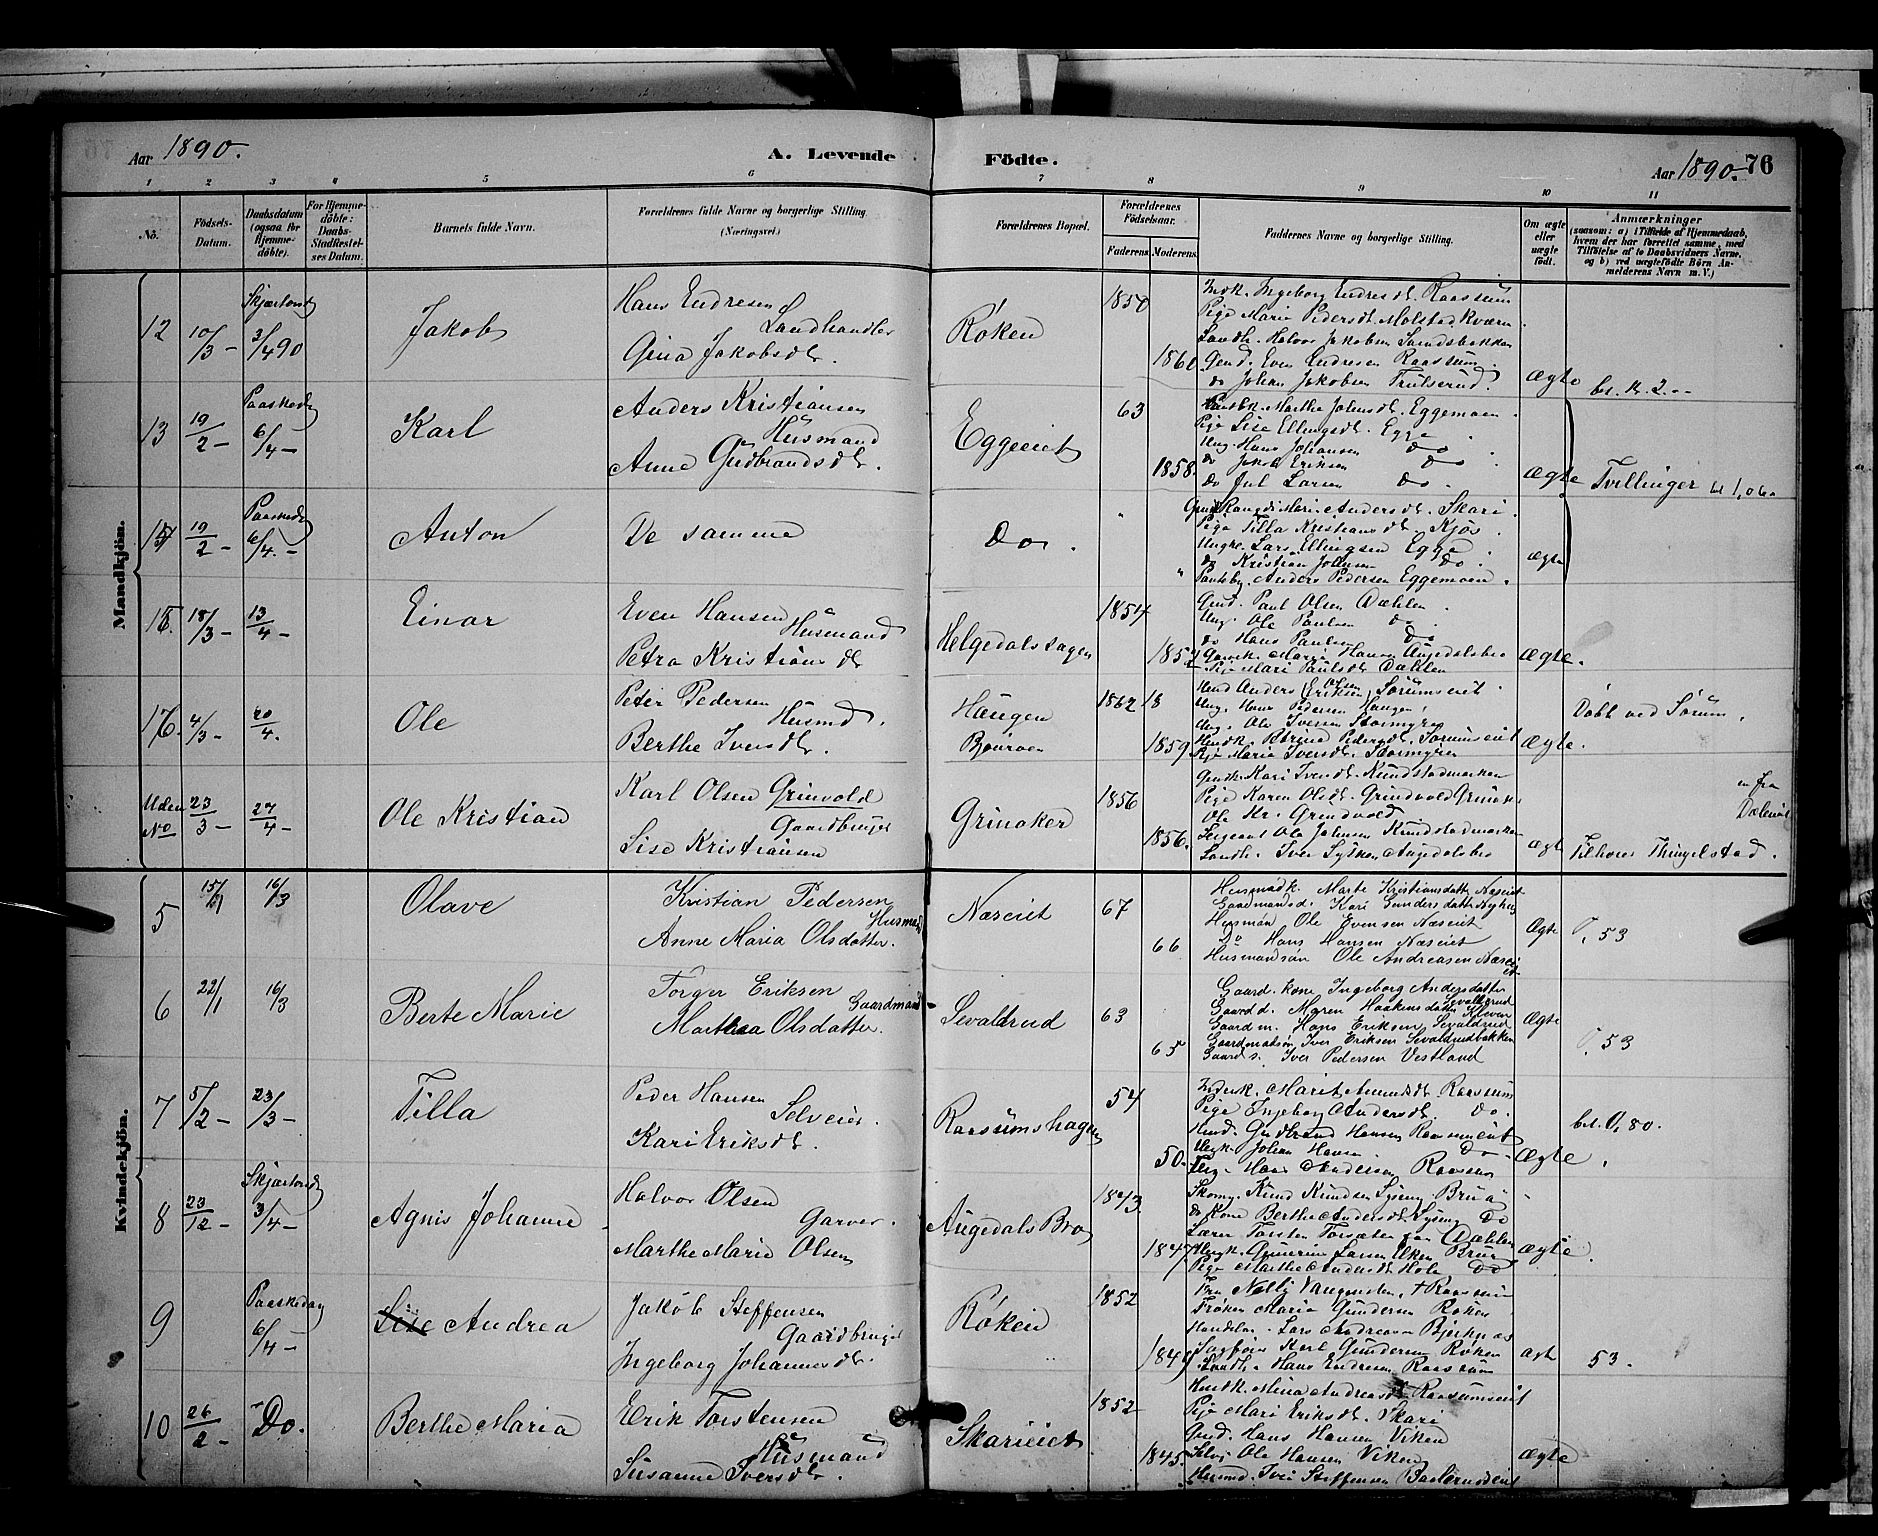 Aar 1890.
A. Levende
Födte.
Aar 1890. 76
1 2 3 4 5 6 7 8 9 10 11
No.
Födsels-Datum.
Daabsdatum (ogsaa for Hjemmedöbte).
For Hjemmedöbte: Daabs-Stadfæstelses Datum.
Barnets fulde Navn.
Forældrenes fulde Navne og borgerlige Stilling (Næringsvei.)
Forældrenes Bopæl.
Forældrenes Födselsaar.
Faderens Moderens
Faddernes Navne og borgerlige Stilling.
Om ægte eller uægte födt.
Anmærkninger
(saasom: a) i Tilfælde af Hjemmedaab, hvem der har forrettet samme, med Tilföielse af to Daabsvidners Navne, og b) ved uægtefödte Börn Anmelderens Navn m. V.)
Mandkjön.
12 10/3 - Skjærtorsd 3/4 90 Jakob
Hans Endresen Landhandler
Gina Jakobsdt.
Røken 1850 1860
Indk. Ingeborg Endresdt. Raassum
Pige Marie Pedersdt. Molstadkværn
Landh. Halvor Jakobsen Sandsbakken
Gmd. Even Endresen Raassum
do Johan Jakobsen Trulserud
Ægte
bet. Kr. 2 --
13 19/2 - Paaskedg 6/4 - Karl
Anders Kristiansen Husmand
Anne Gudbrandsdt.
Eggeeiet 63 1858
Marthe Johnsdt. Eggemoen.
Pige Lise Ellingsdt. Egge
Ung. Hans Johansen Do
do Jakob Eriksen Do
Do Jul Larsen Do.
Ægte
Tvillinger
19/2 - Paaskedg 6/4. - Anton
De samme
Do.
Marie Andersdt. Skari.
Pige Tilla Kristiansdt. Kjøs
Ungk. Lars Ellingsen Egge.
do Kristian Do
Anders Pedersen Eggemoen.
Ægte
18/3 - 13/4 - Einar
Even Hansen Husmand
Petra Kristiansdt
Helgedalshagen 1854
Gmd. Paul Olsen Dæhlen
Ung. Ole Paulsen Do
do Hans Paulsen Do
Garvk. Marie Hansen Augedalsbro
Pige Mari Paulsdt Dæhlen
Ægte.
4/3 - 20/4. Ole
Peter Pedersen Husmd.
Berthe Iversdt.
Haugen
1862 1859
Hmd Anders Eriksen Sørumseiet
Ung. Hans Pedersen Haugen
Ung. Ole Iversen Stormyren
Hmdk. Pedersdt. Sørumseiet
Pige Marie Iversdt. Stormyren
Ægte.
Døbt ved Sørum.
Uden No 23/3 - 27/4 - Ole Kristian
Karl Olsen Grinvold Gaardbruger
Lise Kristiansen
Grinaker 1856 1856.
Gmdk. Kari Iversdt. Kundstadmarken
Pige Karen Olsdt. Grindvold
Ole Kr. Grindvold
Sergeant Ole Johnsen Kundstadmarken
Landh. Iver Augedalsbro
Ægt
Tilhører Thingelstad.
Kvindekjön.
5 15/1 16/3 Olave
Kristian Pedersen Husmand
Anne Maria Olsdatter.
Næseiet 67 66
Husmdk. Marte Kristiansdatter Næseiet
Gaardmandsd. Kari Gundersdatter
Husmdn Ole Evensen Næseiet
Do Hans Hansen Næseiet
Husmandssøn Ole Andreasen Næseiet
Ægte
53
6 22/1 16/3 Berte Marie
Torger Eriksen Gaardmand
Marthea Olsdatter.
Sevaldrud 63 65
Gaard.kone Ingeborg Andersdatter Sevaldrud
Gaardd. Maren Haakensdatter Kleven
Gaardm. Hans Eriksen Sevaldrud
Gaardmandssøn Iver Eriksen Sevaldrudbakken
Gaards. Iver Pedersen Vestland
Ægte
53
7 5/2 - 23/3 - Tilla
Peder Hansen Selveier.
Kari Eriksdt.
Raasumshagen 54 50.
Inderk. Marit Amundsdt Raassum
Pige Ingeborg Andersdt. Do.
Hmd. Gudbrand Hansen Raasumeiet
Ungk. Johan Hansen Do
Hans Andersen Raasum
Ægte
bet. 0,80.
8 23/12 - Skjærtorsdg 3/4 - Agnis Johanne
Halvor Olsen Garver.
Marthe Marie Olsen
Augedals Bro 1843 1847
Skomg. Knud Knudsen Lyseng Brua
do Kone Berthe Andersdt. Lyseng Do
Lærer Torsten Dæhlen
Ungk. Gunerius Larsen Brua
Pige Marthe Andersdt Hole Do
Ægte
9 Paaskedag 6/4 - Lise Andrea
Jakob Steffensen Gaardbruger
Ingeborg Johannesdt.
Røken 1852
Fru Nelly Vangensten, Raassum
Frøken Maria Gundersen Røken
Handelsm. Lars Andreasen Bjerknæs
Sagfører Karl Gundersen Røken
Landh. Hans Endresen Raassum
Ægte
53.
10 26/2 - Do. Berthe Maria
Erik Torstensen Husmand
Susanne Iversdt.
Skarieiet 1852 1845.
Hmdk. Mina Andreasdt Raasumseiet
Pige Mari Eriksdt. Skari
Gmd. Hans Hansen Viken
Selvj. Ole Hansen Viken
Husmd. Iver Steffensen
Ægte